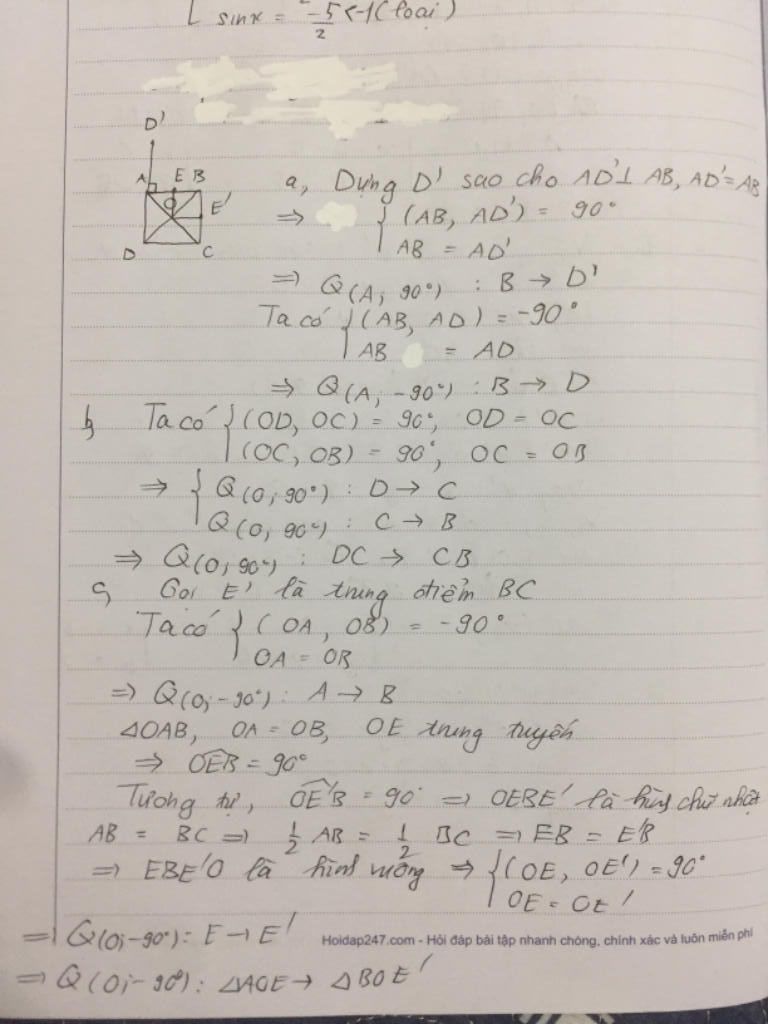 sinx = -5/2 < -1 (loại)
D'
A E B
O E'
D C
a, Dựng D' sao cho AD' ⊥ AB, AD' = AB
=> { (AB, AD') = 90°
AB = AD'
=> Q(A; 90°) : B → D'
Ta có { (AB, AD) = -90°
AB = AD
=> Q(A; -90°) : B → D
b, Ta có { (OD, OC) = 90°, OD = OC
(OC, OB) = 90°, OC = OB
=> { Q(O; 90°) : D → C
Q(O; 90°) : C → B
=> Q(O; 90°) : DC → CB
c, Gọi E' là trung điểm BC
Ta có { (OA, OB) = -90°
OA = OB
=> Q(O; -90°) : A → B
ΔOAB, OA = OB, OE trung tuyến
=> OEB = 90°
Tương tự, OE'B = 90° => OEBE' là hình chữ nhật
AB = BC => 1/2 AB = 1/2 BC => EB = E'B
=> EBE'O là hình vuông => { (OE, OE') = 90°
OE = OE'
=> Q(O; -90°) : E → E'
Hoidap247.com - Hỏi đáp bài tập nhanh chóng, chính xác và luôn miễn phí
=> Q(O; -90°) : ΔAOE → ΔBOE'